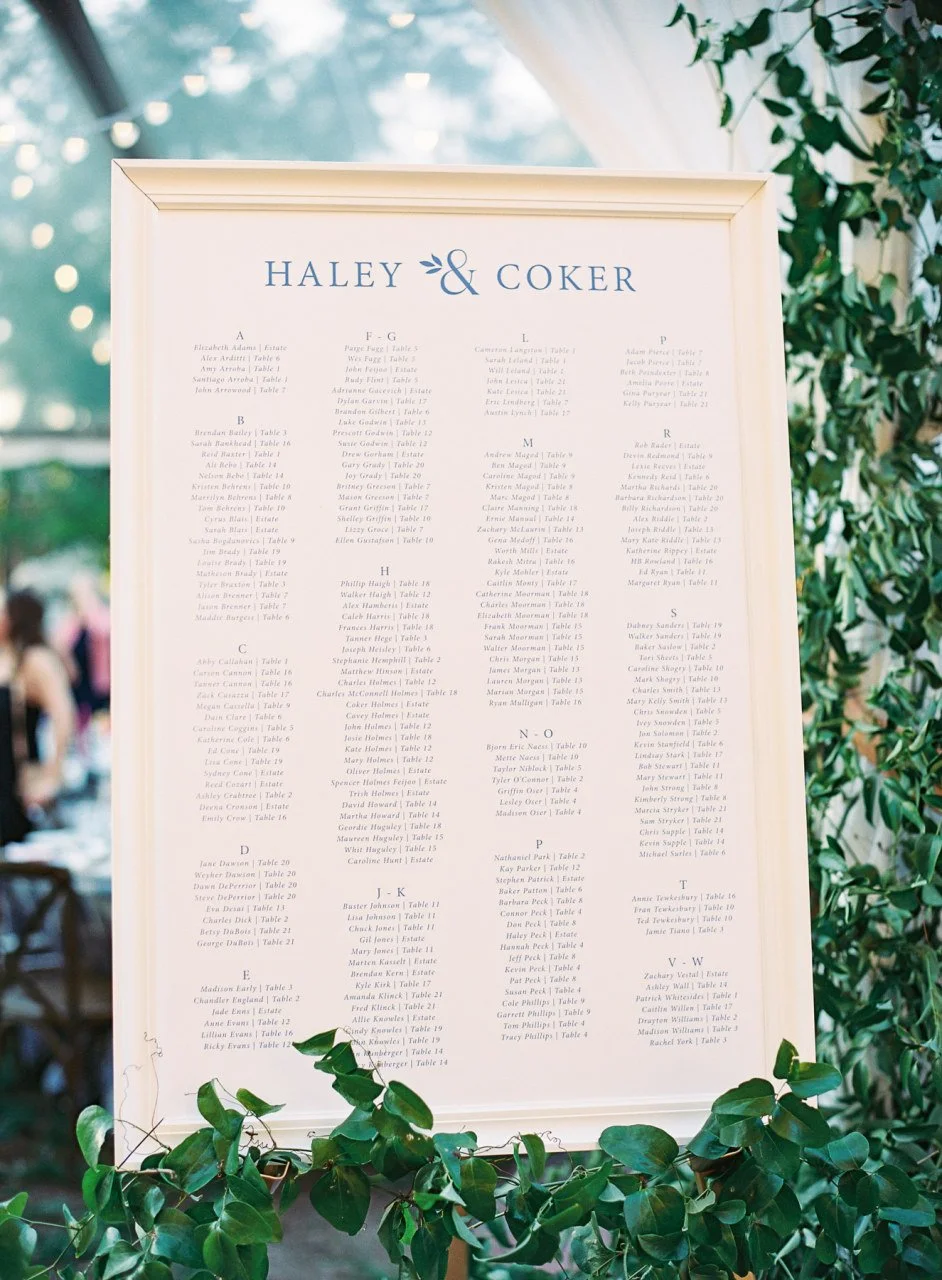 HALEY & COKER
A
Elizabeth Adams | Estate
Alex Arditti | Table 6
Amy Arroba | Table 1
Santiago Arroba | Table 1
John Arrowood | Table 7
B
Brendan Bailey | Table 3
Sarah Bankhead | Table 16
Reid Baxter | Table 1
Ali Bebo | Table 14
Nelson Bebo | Table 14
Kristen Behrens | Table 10
Marrilyn Behrens | Table 8
Tom Behrens | Table 10
Cyrus Blais | Estate
Sarah Blais | Estate
Sasha Bogdanovics | Table 9
Jim Brady | Table 19
Louise Brady | Table 19
Matheson Brady | Estate
Tyler Braxton | Table 3
Alison Brenner | Table 7
Jason Brenner | Table 7
Maddie Burgess | Table 6
C
Abby Callahan | Table 1
Carson Cannon | Table 16
Tanner Cannon | Table 16
Zack Casazza | Table 17
Megan Cassella | Table 9
Dain Clare | Table 6
Caroline Coggins | Table 5
Katherine Cole | Table 6
Ed Cone | Table 19
Lisa Cone | Table 19
Sydney Cone | Estate
Reed Cozart | Estate
Ashley Crabtree | Table 2
Deena Cronson | Estate
Emily Crow | Table 16
D
Jane Dawson | Table 20
Weyher Dawson | Table 20
Dawn DePerrior | Table 20
Steve DePerrior | Table 20
Eva Desai | Table 13
Charles Dick | Table 2
Betsy DuBois | Table 21
George DuBois | Table 21
E
Madison Early | Table 3
Chandler England | Table 2
Jade Enns | Estate
Anne Evans | Table 12
Lillian Evans | Table 16
Ricky Evans | Table 12
F - G
Paige Fugg | Table 5
Wes Fugg | Table 5
John Feijoo | Estate
Rudy Flint | Table 5
Adrianne Gacevich | Estate
Dylan Garvin | Table 17
Brandon Gilbert | Table 6
Luke Godwin | Table 13
Prescott Godwin | Table 12
Susie Godwin | Table 12
Drew Gorham | Estate
Gary Grady | Table 20
Joy Grady | Table 20
Britney Greeson | Table 7
Mason Greeson | Table 7
Grant Griffin | Table 17
Shelley Griffin | Table 10
Lizzy Groce | Table 7
Ellen Gustafson | Table 10
H
Phillip Haigh | Table 18
Walker Haigh | Table 12
Alex Hamberis | Estate
Caleb Harris | Table 18
Frances Harris | Table 18
Tanner Hege | Table 3
Joseph Heisley | Table 6
Stephanie Hemphill | Table 2
Matthew Hinson | Estate
Charles Holmes | Table 12
Charles McConnell Holmes | Table 18
Coker Holmes | Estate
Covey Holmes | Estate
John Holmes | Table 12
Josie Holmes | Table 18
Kate Holmes | Table 12
Mary Holmes | Table 12
Oliver Holmes | Estate
Spencer Holmes Feijoo | Estate
Trish Holmes | Estate
David Howard | Table 14
Martha Howard | Table 14
Geordie Huguley | Table 18
Maureen Huguley | Table 15
Whit Huguley | Table 15
Caroline Hunt | Estate
J - K
Buster Johnson | Table 11
Lisa Johnson | Table 11
Chuck Jones | Table 11
Gil Jones | Estate
Mary Jones | Table 11
Marten Kasselt | Estate
Brendan Kern | Estate
Kyle Kirk | Table 17
Amanda Klinck | Table 21
Fred Klinck | Table 21
Allie Knowles | Estate
Cindy Knowles | Table 19
Knowles | Table 19
| Table 14
| Table 14
L
Cameron Langston | Table 1
Sarah Leland | Table 1
Will Leland | Table 1
John Lesica | Table 21
Kate Lesica | Table 21
Eric Lindberg | Table 7
Austin Lynch | Table 17
M
Andrew Magod | Table 9
Ben Magod | Table 9
Caroline Magod | Table 9
Kristen Magod | Table 8
Mars Magod | Table 8
Claire Manning | Table 18
Ernie Manual | Table 14
Zachary McLaurin | Table 13
Gena Medoff | Table 16
Worth Mills | Estate
Rakesh Mitra | Table 16
Kyle Mohler | Estate
Caitlin Monty | Table 17
Catherine Moorman | Table 18
Charles Moorman | Table 18
Elizabeth Moorman | Table 18
Frank Moorman | Table 15
Sarah Moorman | Table 15
Walter Moorman | Table 15
Chris Morgan | Table 15
James Morgan | Table 13
Lauren Morgan | Table 13
Marian Morgan | Table 15
Ryan Mulligan | Table 16
N - O
Bjorn Eric Naess | Table 10
Mette Naess | Table 10
Taylor Niblock | Table 5
Tyler O'Connor | Table 2
Griffin Oser | Table 4
Lesley Oser | Table 4
Madison Oser | Table 4
P
Nathaniel Park | Table 2
Kay Parker | Table 12
Stephen Patrick | Estate
Baker Patton | Table 6
Barbara Peck | Table 8
Connor Peck | Table 4
Don Peck | Table 8
Haley Peck | Estate
Hannah Peck | Table 4
Jeff Peck | Table 8
Kevin Peck | Table 4
Pat Peck | Table 8
Susan Peck | Table 4
Cole Phillips | Table 9
Garrett Phillips | Table 9
Tom Phillips | Table 4
Tracy Phillips | Table 4
P
Adam Pierce | Table 7
Jacob Pierce | Table 7
Beth Poindexter | Table 8
Amelia Poore | Estate
Gina Puryear | Table 21
Kelly Puryear | Table 21
R
Rob Rader | Estate
Devin Redmond | Table 9
Lexie Reeves | Estate
Kennedy Reid | Table 6
Martha Richards | Table 20
Barbara Richardson | Table 20
Billy Richardson | Table 20
Alex Riddle | Table 2
Joseph Riddle | Table 13
Mary Kate Riddle | Table 13
Katherine Rippey | Estate
HB Rowland | Table 16
Ed Ryan | Table 11
Margaret Ryan | Table 11
S
Dabney Sanders | Table 19
Walker Sanders | Table 19
Baker Saslow | Table 2
Tori Sheets | Table 5
Caroline Shogry | Table 10
Mark Shogry | Table 10
Charles Smith | Table 13
Mary Kelly Smith | Table 13
Chris Snowden | Table 5
Ivey Snowden | Table 5
Jon Solomon | Table 2
Kevin Stanfield | Table 6
Lindsay Stark | Table 17
Bob Stewart | Table 11
Mary Stewart | Table 11
John Strong | Table 8
Kimberly Strong | Table 8
Marcia Stryker | Table 21
Sam Stryker | Table 21
Chris Supple | Table 14
Kevin Supple | Table 14
Michael Surles | Table 6
T
Annie Tewkesbury | Table 16
Fran Tewkesbury | Table 10
Ted Tewkesbury | Table 10
Jamie Tiano | Table 3
V - W
Zachary Vestal | Estate
Ashley Wall | Table 14
Patrick Whitesides | Table 1
Caitlin Willen | Table 17
Drayton Williams | Table 2
Madison Williams | Table 3
Rachel York | Table 3